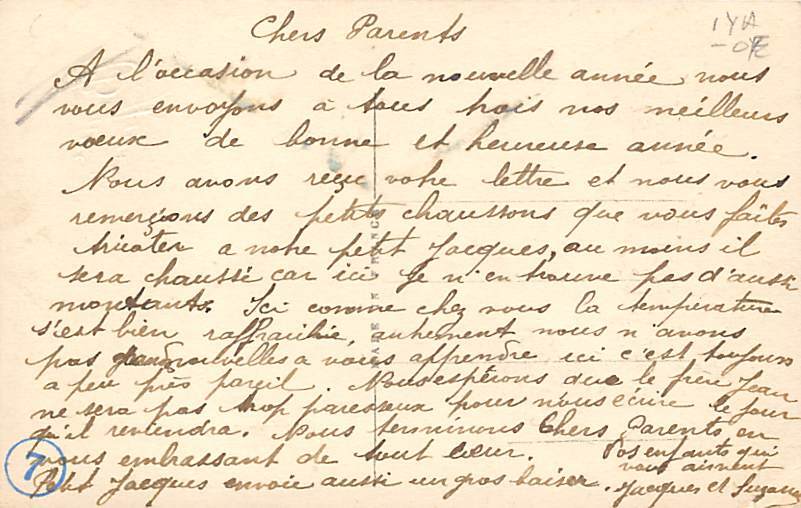 Chers Parents
A l'occasion de la nouvelle année nous
vous envoyons à tous trois nos meilleurs
vœux de bonne et heureuse année.
Nous avons reçu votre lettre et nous vous
remerçions des petits chaussons que vous faites
tricoter a notre petit Jacques, au moins il
sera chaussé car ici je n'en trouve pas d'aussi
montants. Ici comme chez vous la température
s'est bien raffraichie, autrement nous n'avons
pas grand nouvelles a vous apprendre ici c'est toujours
a peu près pareil. Nous espérons que le frère Jean
ne sera pas trop paresseux pour nous écrire le jour
qu'il reviendra. Nous terminons Chers Parents en
vous embrassant de tout cœur.
Petit Jacques envoie aussi un gros baiser.
Vos enfants qui
vous aiment
Jacques et Suzanne
7